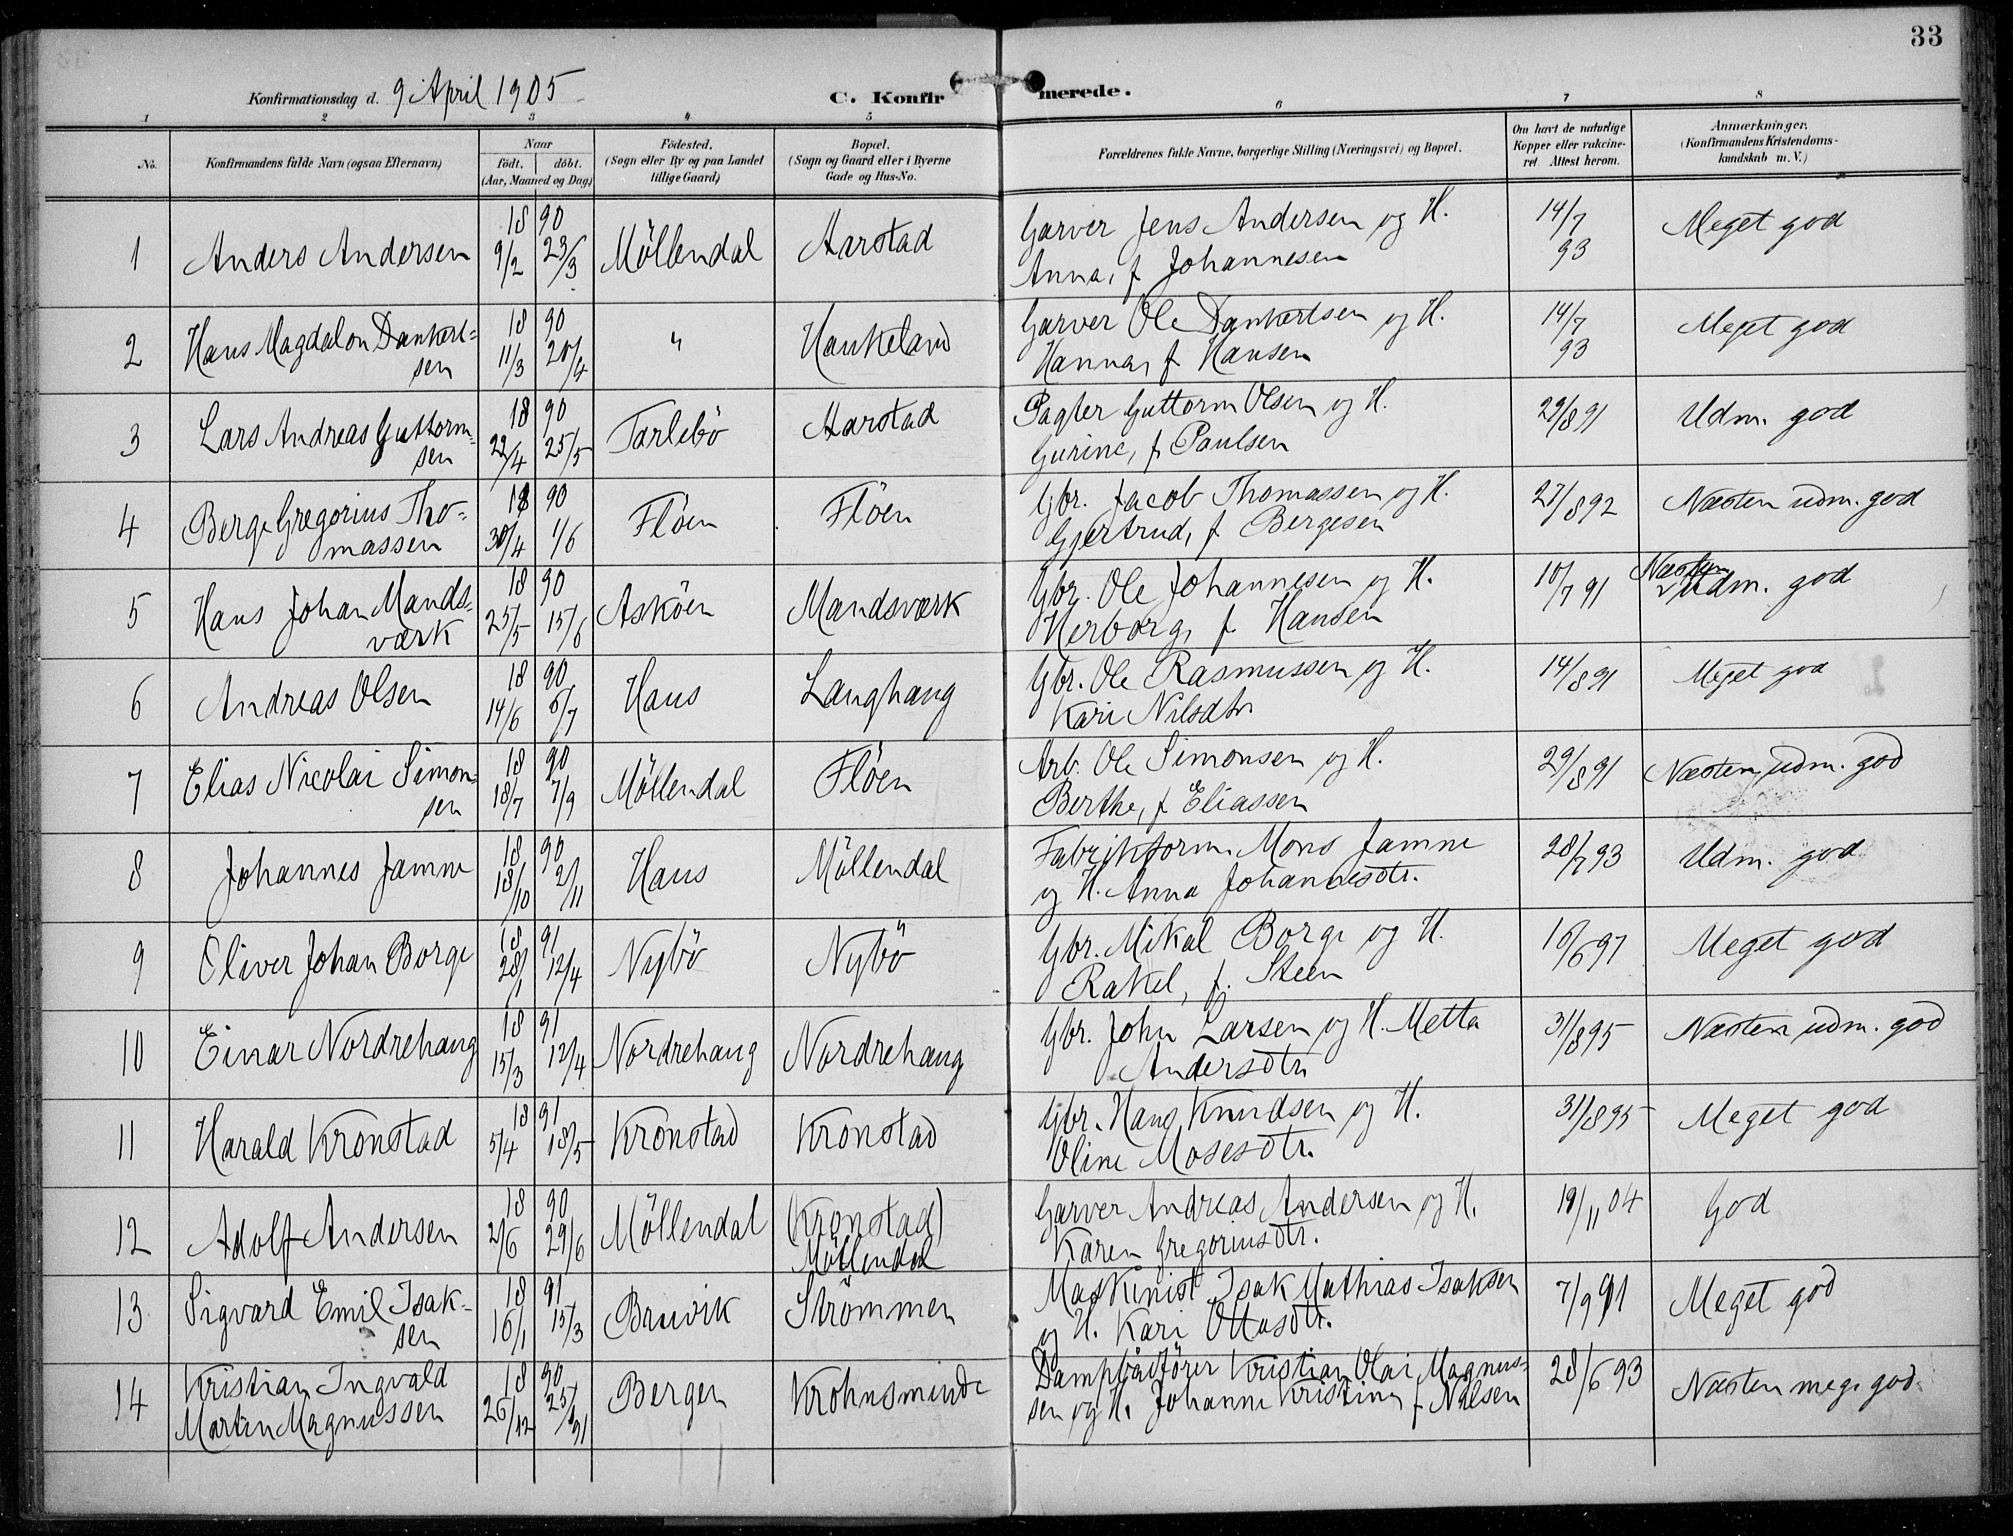 33
Konfirmationsdag d. 9 April 1905
C. Konfirmerede.
1 2 3 4 5 6 7 8
No. Konfirmandens fulde Navn (ogsaa Efternavn) Naar födt. döbt. (Aar, Maaned og Dag) Födested. (Sogn eller By og paa Landet tillige Gaard) Bopæl. (Sogn og Gaard eller i Byerne Gade og Hus-No. Forældrenes fulde Navne, borgerlige Stilling (Næringsvei) og Bopæl. Om havt de naturlige Kopper eller vakcineret. Attest herom. Anmærkninger. (Konfirmandens Kristendomskundskab m. V.)
1 Anders Andersen 18 90 9/2 23/3 Möllendal Aarstad Garver Jens Andersen og H. 14/7 93 Meget god
Anna, f Johannesen
2 Hans Magdalon Dankert- 18 90 11/3 20/4 " Haukeland Garver Ole Dankertsen og H. 14/7 93 Meget god
sen Hanna, f Hansen
3 Lars Andreas Guttorm- 18 90 22/4 25/5 Tarlebö Aarstad Pagter Guttorm Olsen og H. 29/8 91 Udm. god
sen Gurine, f Paulsen
4 Berge Gregorius Tho- 18 90 30/4 1/6 Flöen Flöen Gbr. Jacob Thomassen og H. 27/8 92 Næsten udm. god
massen Gjertrud, f Bergesen
5 Hans Johan Mands- 18 90 25/5 15/6 Asköen Mandsværk Gbr. Ole Johannesen og H. 10/7 91 Næsten Udm. god
værk Herborg, f Hansen
6 Andreas Olsen 18 90 14/6 6/7 Haus Langhaug Gbr. Ole Rasmussen og H. 14/8 91 Meget god
Kari Nilsdtr
7 Elias Nicolai Simon- 18 90 18/7 7/9 Möllendal Flöen Arb. Ole Simonsen og H. 29/8 91 Næsten udm. god
sen Berthe, f Eliassen
8 Johannes Jamne 18 90 18/10 2/11 Haus Möllendal Fabrikform. Mons Jamne 28/7 93 Udm. god
og H. Anna Johannesdtr.
9 Oliver Johan Borge 18 91 28/1 12/4 Nybö Nybö Gbr. Mikal Borge og H. 16/6 91 Meget god
Rakel, f. Steen
10 Einar Nordrehaug 18 91 15/3 12/4 Nordrehaug Nordrehaug Gbr. John Larsen og H. Metta 31/8 95 Næsten udm. god
Andersdtr
11 Harald Kronstad 18 91 5/4 18/5 Kronstad Kronstad Gbr. Hans Knudsen og H. 31/8 95 Meget god
Oline Mosesdtr.
12 Adolf Andersen 18 90 2/6 29/6 Möllendal (Kronstad) Garver Andreas Andersen og H. 19/11 04 God
Möllendal Karen Gregoriusdtr.
13 Sigvard Emil Isak- 18 91 16/1 15/3 Bruvik Strömmen Maskinist Isak Mathias Isaksen 7/9 91 Meget god
sen og H. Kari Ottosdtr.
14 Kristian Ingvald 18 90 26/12 25/1 91 Bergen Krohnsminde Dampbådförer Kristian Olai Magnus- 28/6 93 Næsten meg. god
Martin Magnussen sen og H. Johanne Kristine, f Nilsen